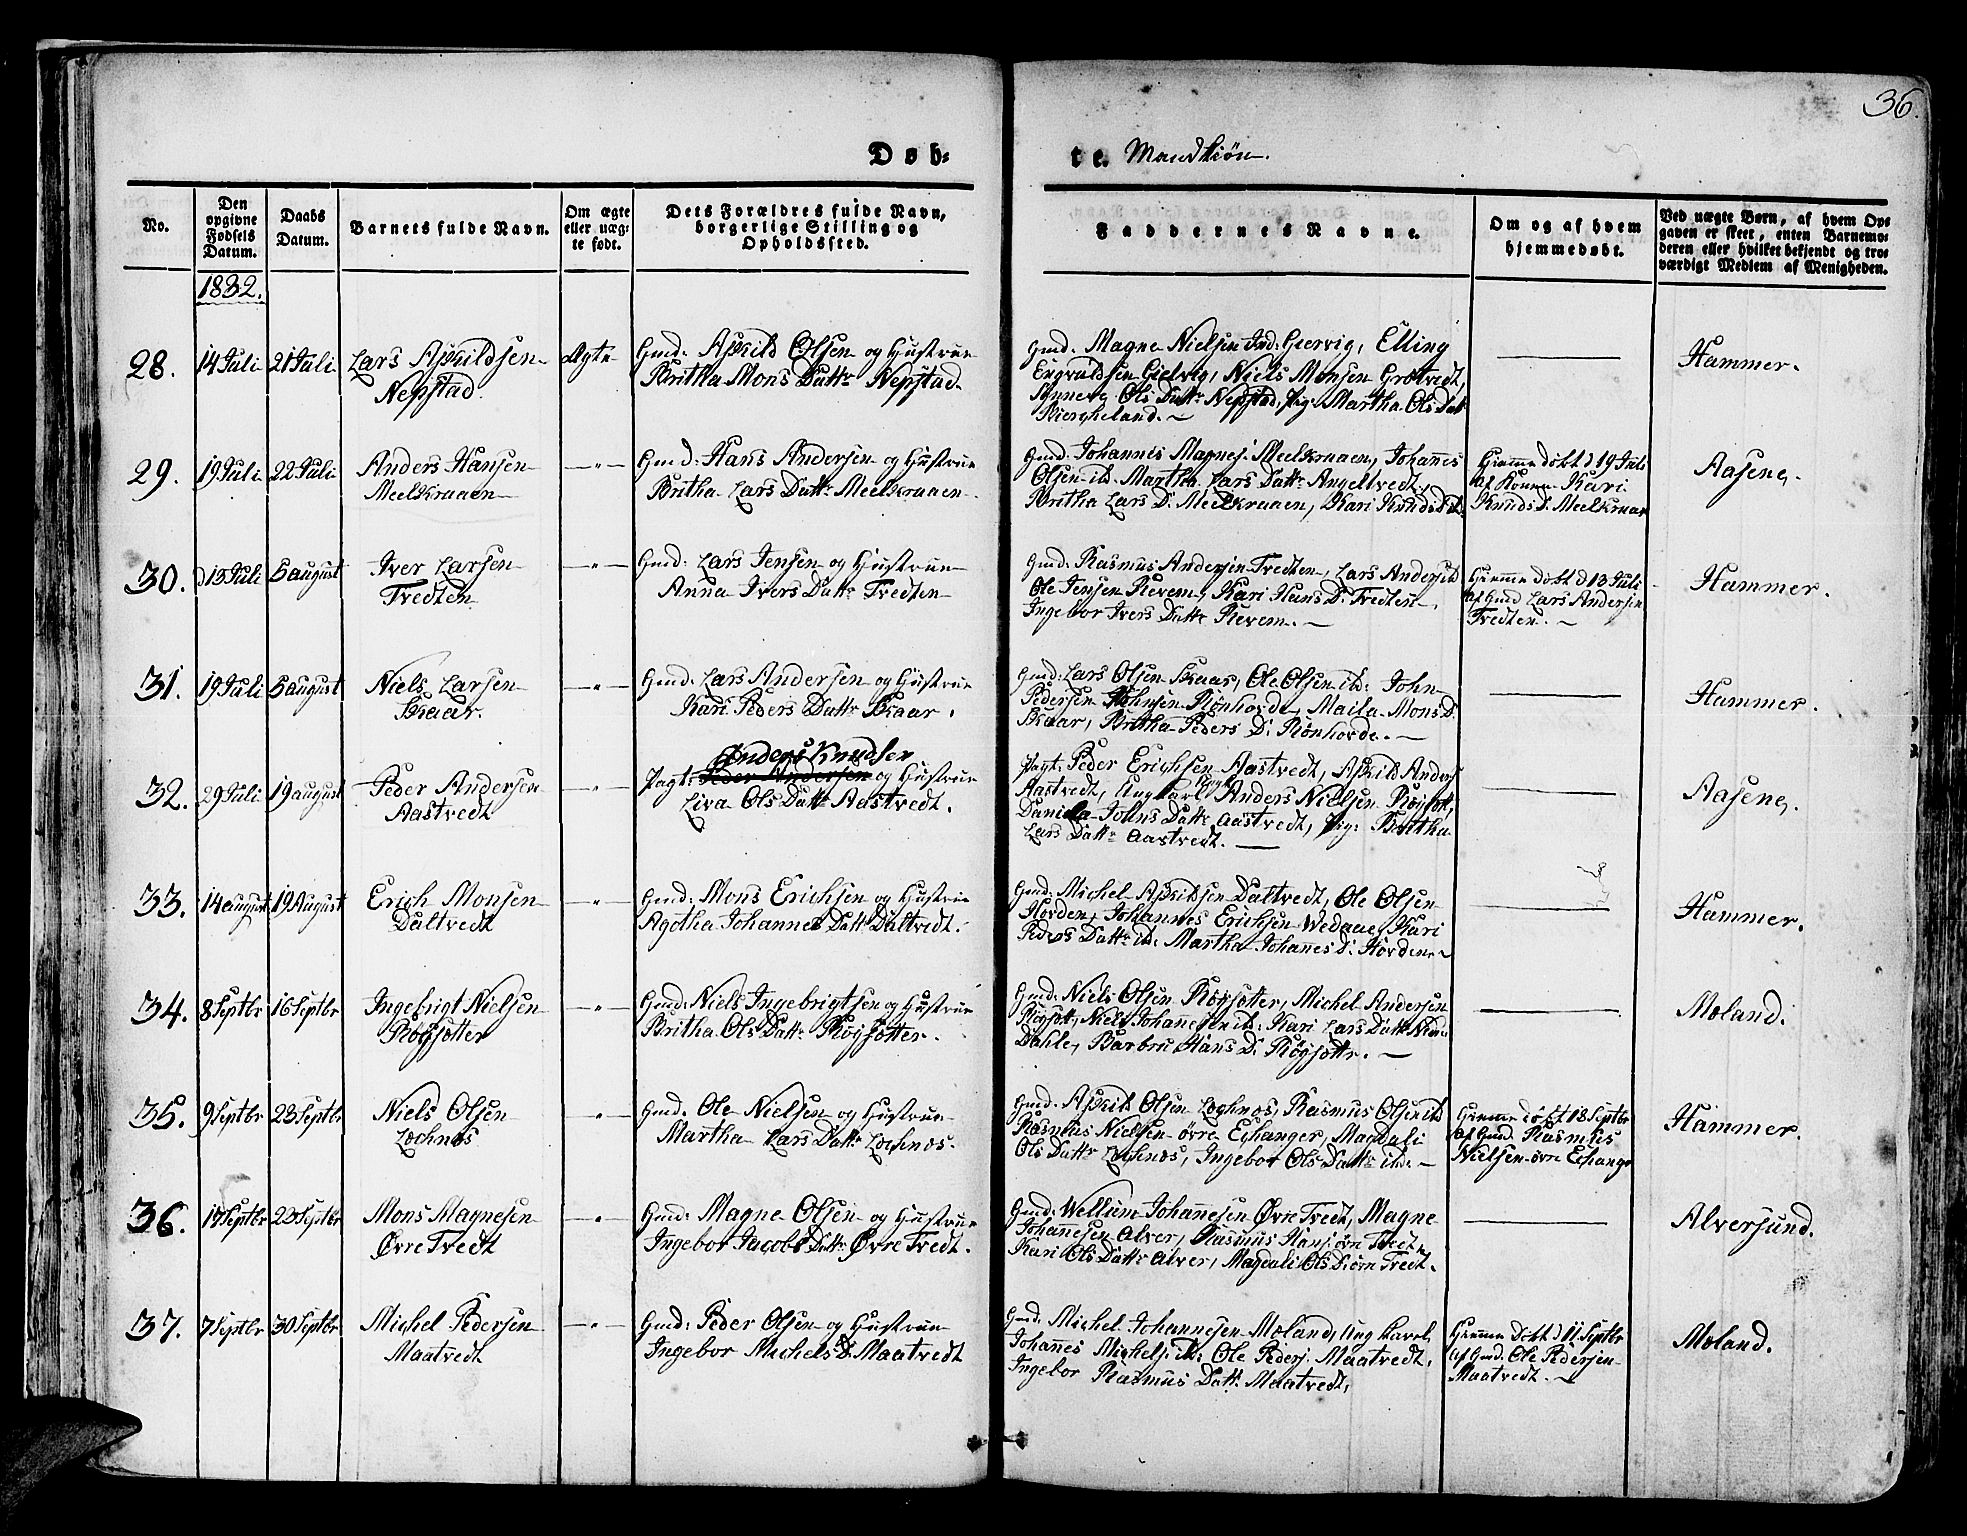 36.
Døb=
te. Mandkiøn.
No.
Den opgivne Fødsels Datum.
Daabs Datum.
Barnets fulde Navn.
Om ægte eller uægte født.
Dets Forældres fulde Navn, borgerlige Stilling og Opholdssted.
Faddernes Navne.
Om og af hvem hjemmedøbt.
Ved uægte Børn, af hvem Opgaven er skeet, enten Barnemoderen eller hvilket bekjendt og troværdigt Medlem af Menigheden.
1832.
28. 14 Juli 21 Juli Lars Askildsen Ægte Gmd: Askild Olsen og Hustrue
Nepstad. Britha Mons Datt: Nepstad.
Gmd: Magne Nielsen Ind: Giervig, Elling
Gielvig, Niels Monsen Grotvedt,
Ols Datt: Nepstad, Pig: Martha Ols Dat
Biergheland. ~
Hammer.
29. 19 Juli 22 Juli Anders Hansen —"— Gmd: Hans Andersen og Hustrue
Meelkraaen Britha Lars Datt: Meelkraaen
Gmd: Johannes Magnes: Meelkraaen, Johanes
Olsen ib. Martha Lars Datt: Angeltvedt,
Britha Lars D: Meelkraaen, Kari Knuds D:
Hiemmedøbt d 19 Juli
af Konen Kari
Knuds D: Meelkraae
Aasene.
30. 13 Juli 5 august Iver Larsen —"— Gmd: Lars Jensen og Hustrue
Tredten Anna Ivers Datt: Tredten
Gmd: Rasmus Andersen Tredten, Lars Andersen ib
Ole Jensen Revem, Kari Hans D: Tredten,
Ingebor Ivers Datt: Revem. ~
Hiemmedøbt d 13 Juli
af Gmd Lars Andersen
Tredten. ~
Hammer.
31. 19 Juli 5 august Niels Larsen —"— Gmd: Lars Andersen og Hustrue
Skaar. Kari Peders Datt: Skaar.
Gmd: Lars Olsen Skaar, Ole Olsen ib: John
Pedersen Rønhorde, Maila Mons D:
Skaar, Britha Peders D: Rønhorde. ~
Hammer.
32. 29 Juli 19 august Peder Andersen —"— Anders Knudsen
Pagt: Peder Andersen og Hustrue
Aastvedt Liva Ols Datt: Aastvedt.
Pagt: Peder Erichsen Aastvedt, Askild Anders
Aastvedt, Ung Karl Anders Nielsen Røgsot,
Daniela Johns Datt: Aastvedt, Pig: Britha
Lars Datt: Aastvedt. —
Aasene.
33. 14 august 19 August Erich Monsen —"— Gmd: Mons Erichsen og Hustrue
Daltvedt Agotha Johannes Datt: Daltvedt.
Gmd: Michel Askildsen Daltvedt, Ole Olsen
Horden, Johannes Erichsen Wedaae, Kari
Peders Datt: ib: Martha Johanes D: Horden. ~
Hammer.
34. 8 Septbr 16 Septbr Ingebrigt Nielsen —"— Gmd: Niels Ingebrigtsen og Hustrue
Røgsotter Britha Ols Datt: Røgsotter.
Gmd: Niels Olsen Røgsotter, Michel Andersen
Røgsot, Niels Johannesen ib: Kari Lars Datt:
Dahle, Barbru Hans D: Røgsottr. ~
Moland.
35. 9 Septbr 23 Septbr Niels Olsen —"— Gmd: Ole Nielsen og Hustrue
Lochnøs Martha Lars Datt: Lochnøs.
Gmd: Askild Olsen Lochnøs, Rasmus Olsen ib
Rasmus Nielsen øvre Echanger, Magdali
Ols Datt: Lochnøs, Ingebor Ols Datt: ib: ~
Hiemme døbt 18 Septbr
af Gmd. Rasmus
Nielsen øvre Echange
Hammer.
36. 14 Septbr 23 Septbr Mons Magnesen —"— Gmd: Magne Olsen og Hustrue
Øvre Tvedt Ingebor Jacobs Datt: Øvre Tvedt.
Gmd: Wellum Johannesen Øvre Tvedt, Magne
Johannesen Alver, Rasmus Hans: øvre Tvedt,
Kari Ols Datt: Alver, Magdali Ols D: øvre Tvedt.
Alversund.
37. 7 Septbr 30 Septbr Michel Pedersen —"— Gmd: Peder Olsen og Hustrue
Maatvedt Ingebor Michels D: Maatvedt
Gmd: Michel Johannesen Moland, Ung Karel
Johanes Michels: ib: Ole Peders: Maatvedt,
Ingebor Rasmus Datt: Maatvedt,
Hiemme Døbt d 11 Septbr
af Gmd: Ole Pedersen
Maatvedt. ~
Moland.